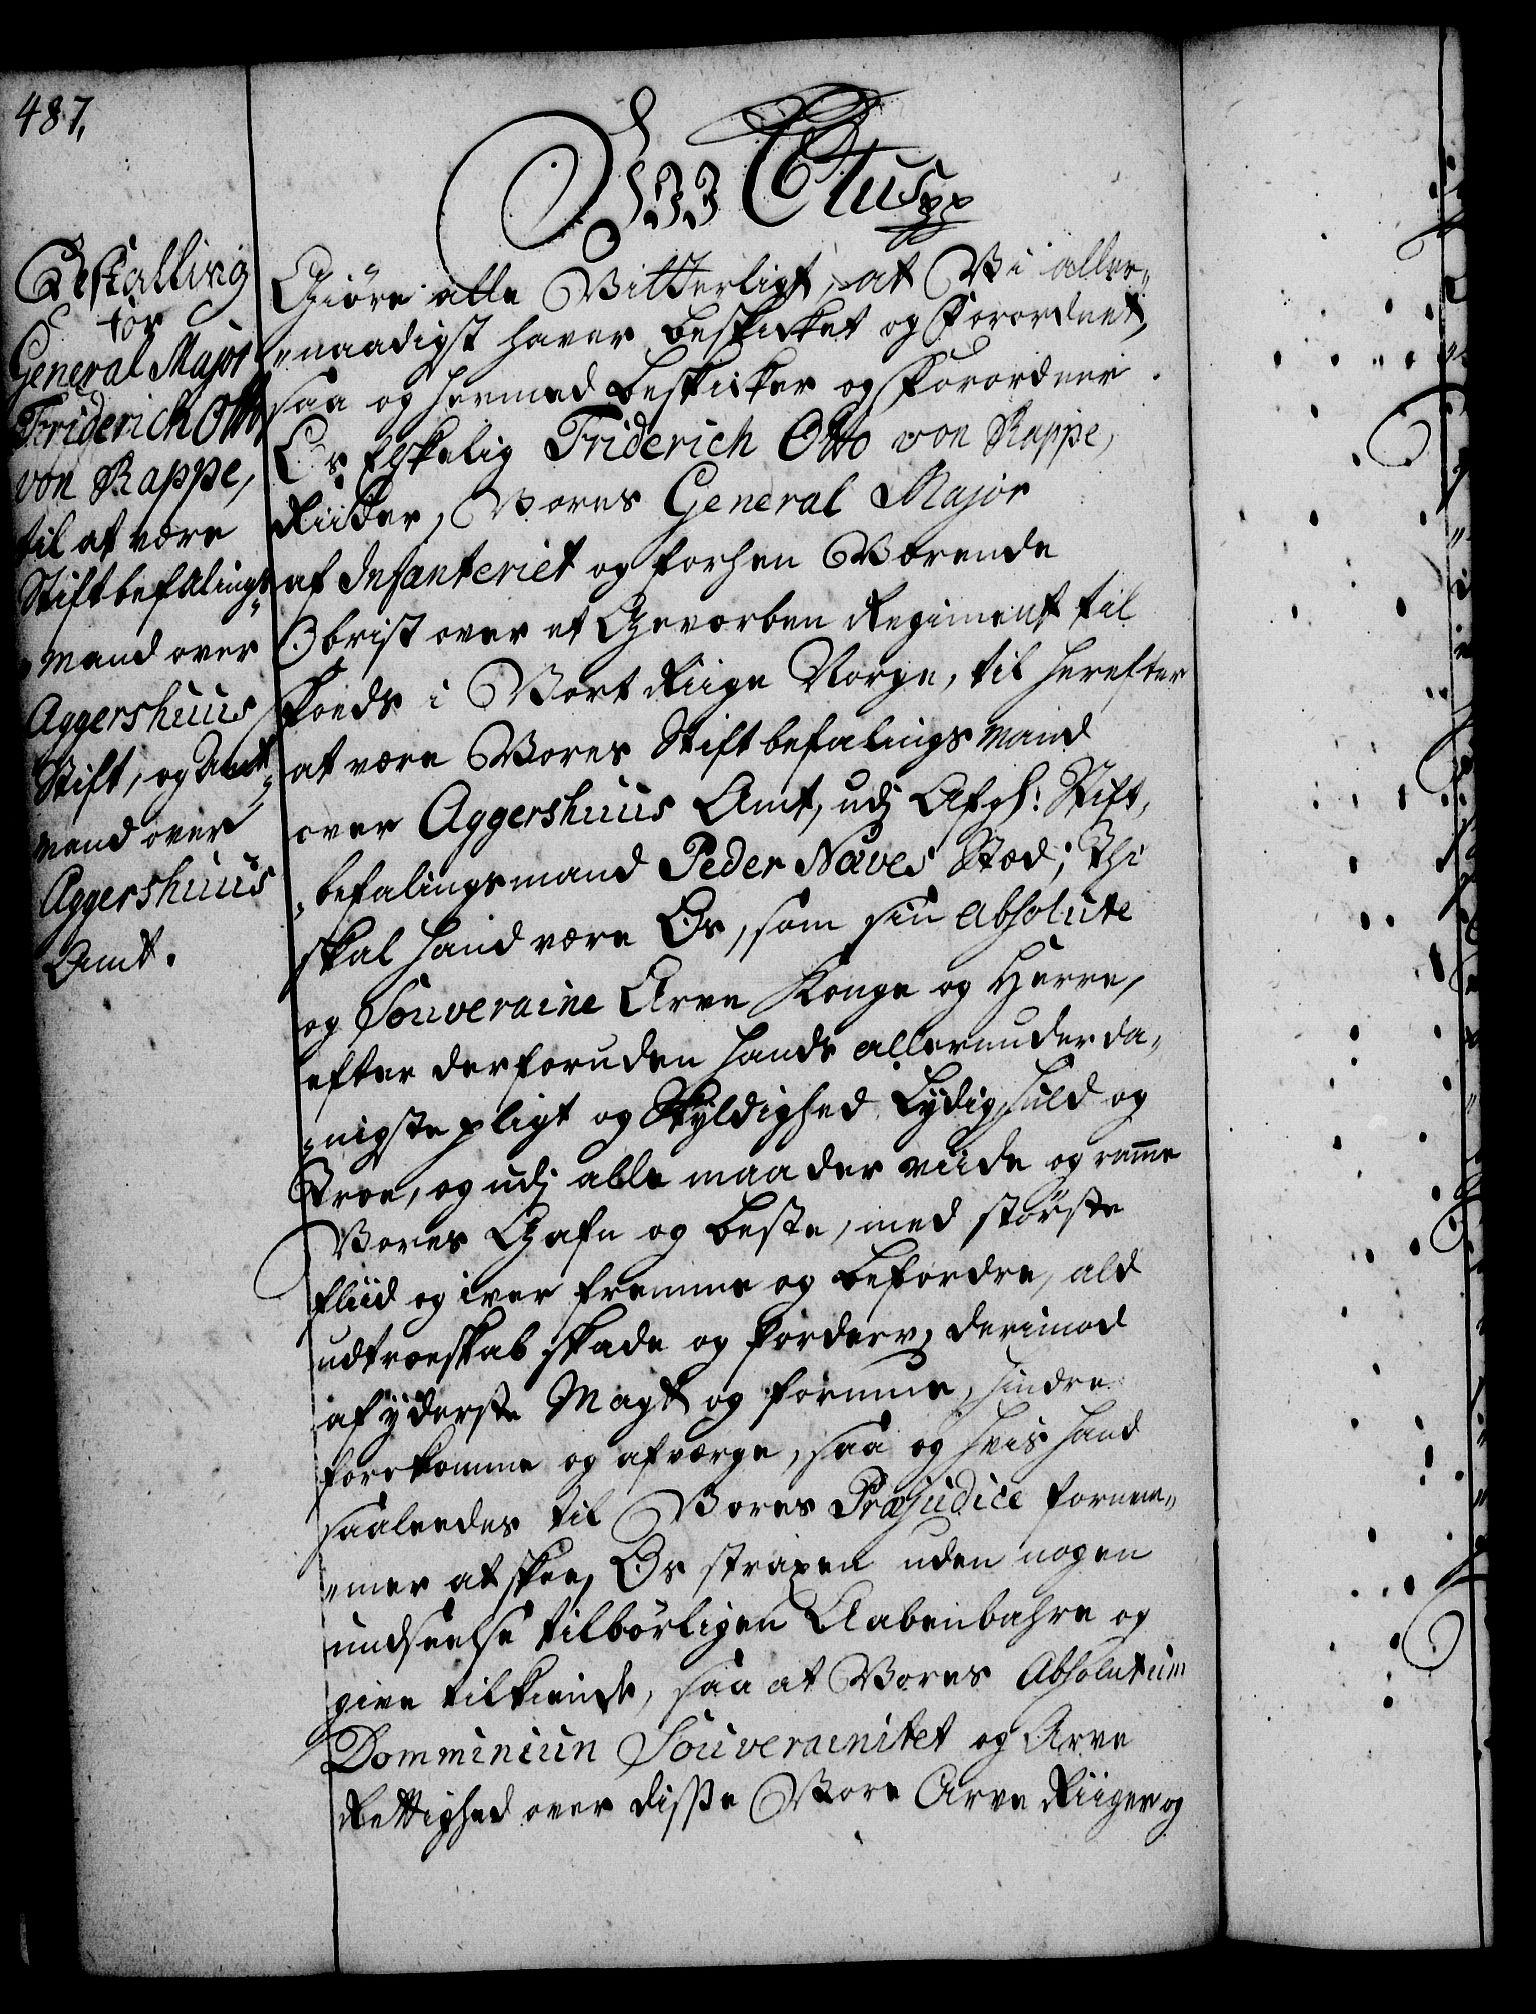 487.
Bestalling
for
General Major
Friderich Otto
von Rappe,
til at være
Stiftbefalings-
mand over
Aggershuus
Stift, og Amt-
mand over
Aggershuus
Amt.
Ctus pp
Giöre alle Vitterligt, at Vi aller-
naadigst haver beskikket og forordnet,
saa og hermed beskikker og forordner
Os Elskelig Friderich Otto von Rappe,
Ridder, Vores General Major
af Infanteriet og forhen Værende
Obrist over et Gevorben Regiment til
foeds i Vort Riige Norge, til herefter
at være Vores Stiftbefalings Mand
over Aggershuus Amt, udj Afgh: Stift-
befalingsmand Peder Neves Stæd; Thi
skal hand være Os, som sin absolute
og Souveraine Arve Konge og Herre,
efter derforuden hands allerunderda-
nigste pligt og Skyldighed Lydig, huld og
troe, og udj alle maader viide og ramme
Vores Gafn og beste, med störste
fliid og iver fremme og befordre, ald
udtroeskab skade og forderv, derimod
af yderste Magt og formue, hindre
forekomme og afværge, saa og hvis hand
saaleedes til Vores Præjudice fornem-
mer at skee, Os straxen uden nogen
undseelse tilbörligen Aabenbahre og
give tilkiende, saa at Vores Absolutum
Domminiun Souverainitet og Arve
Rettighed over disse Vore Arve Riiger og